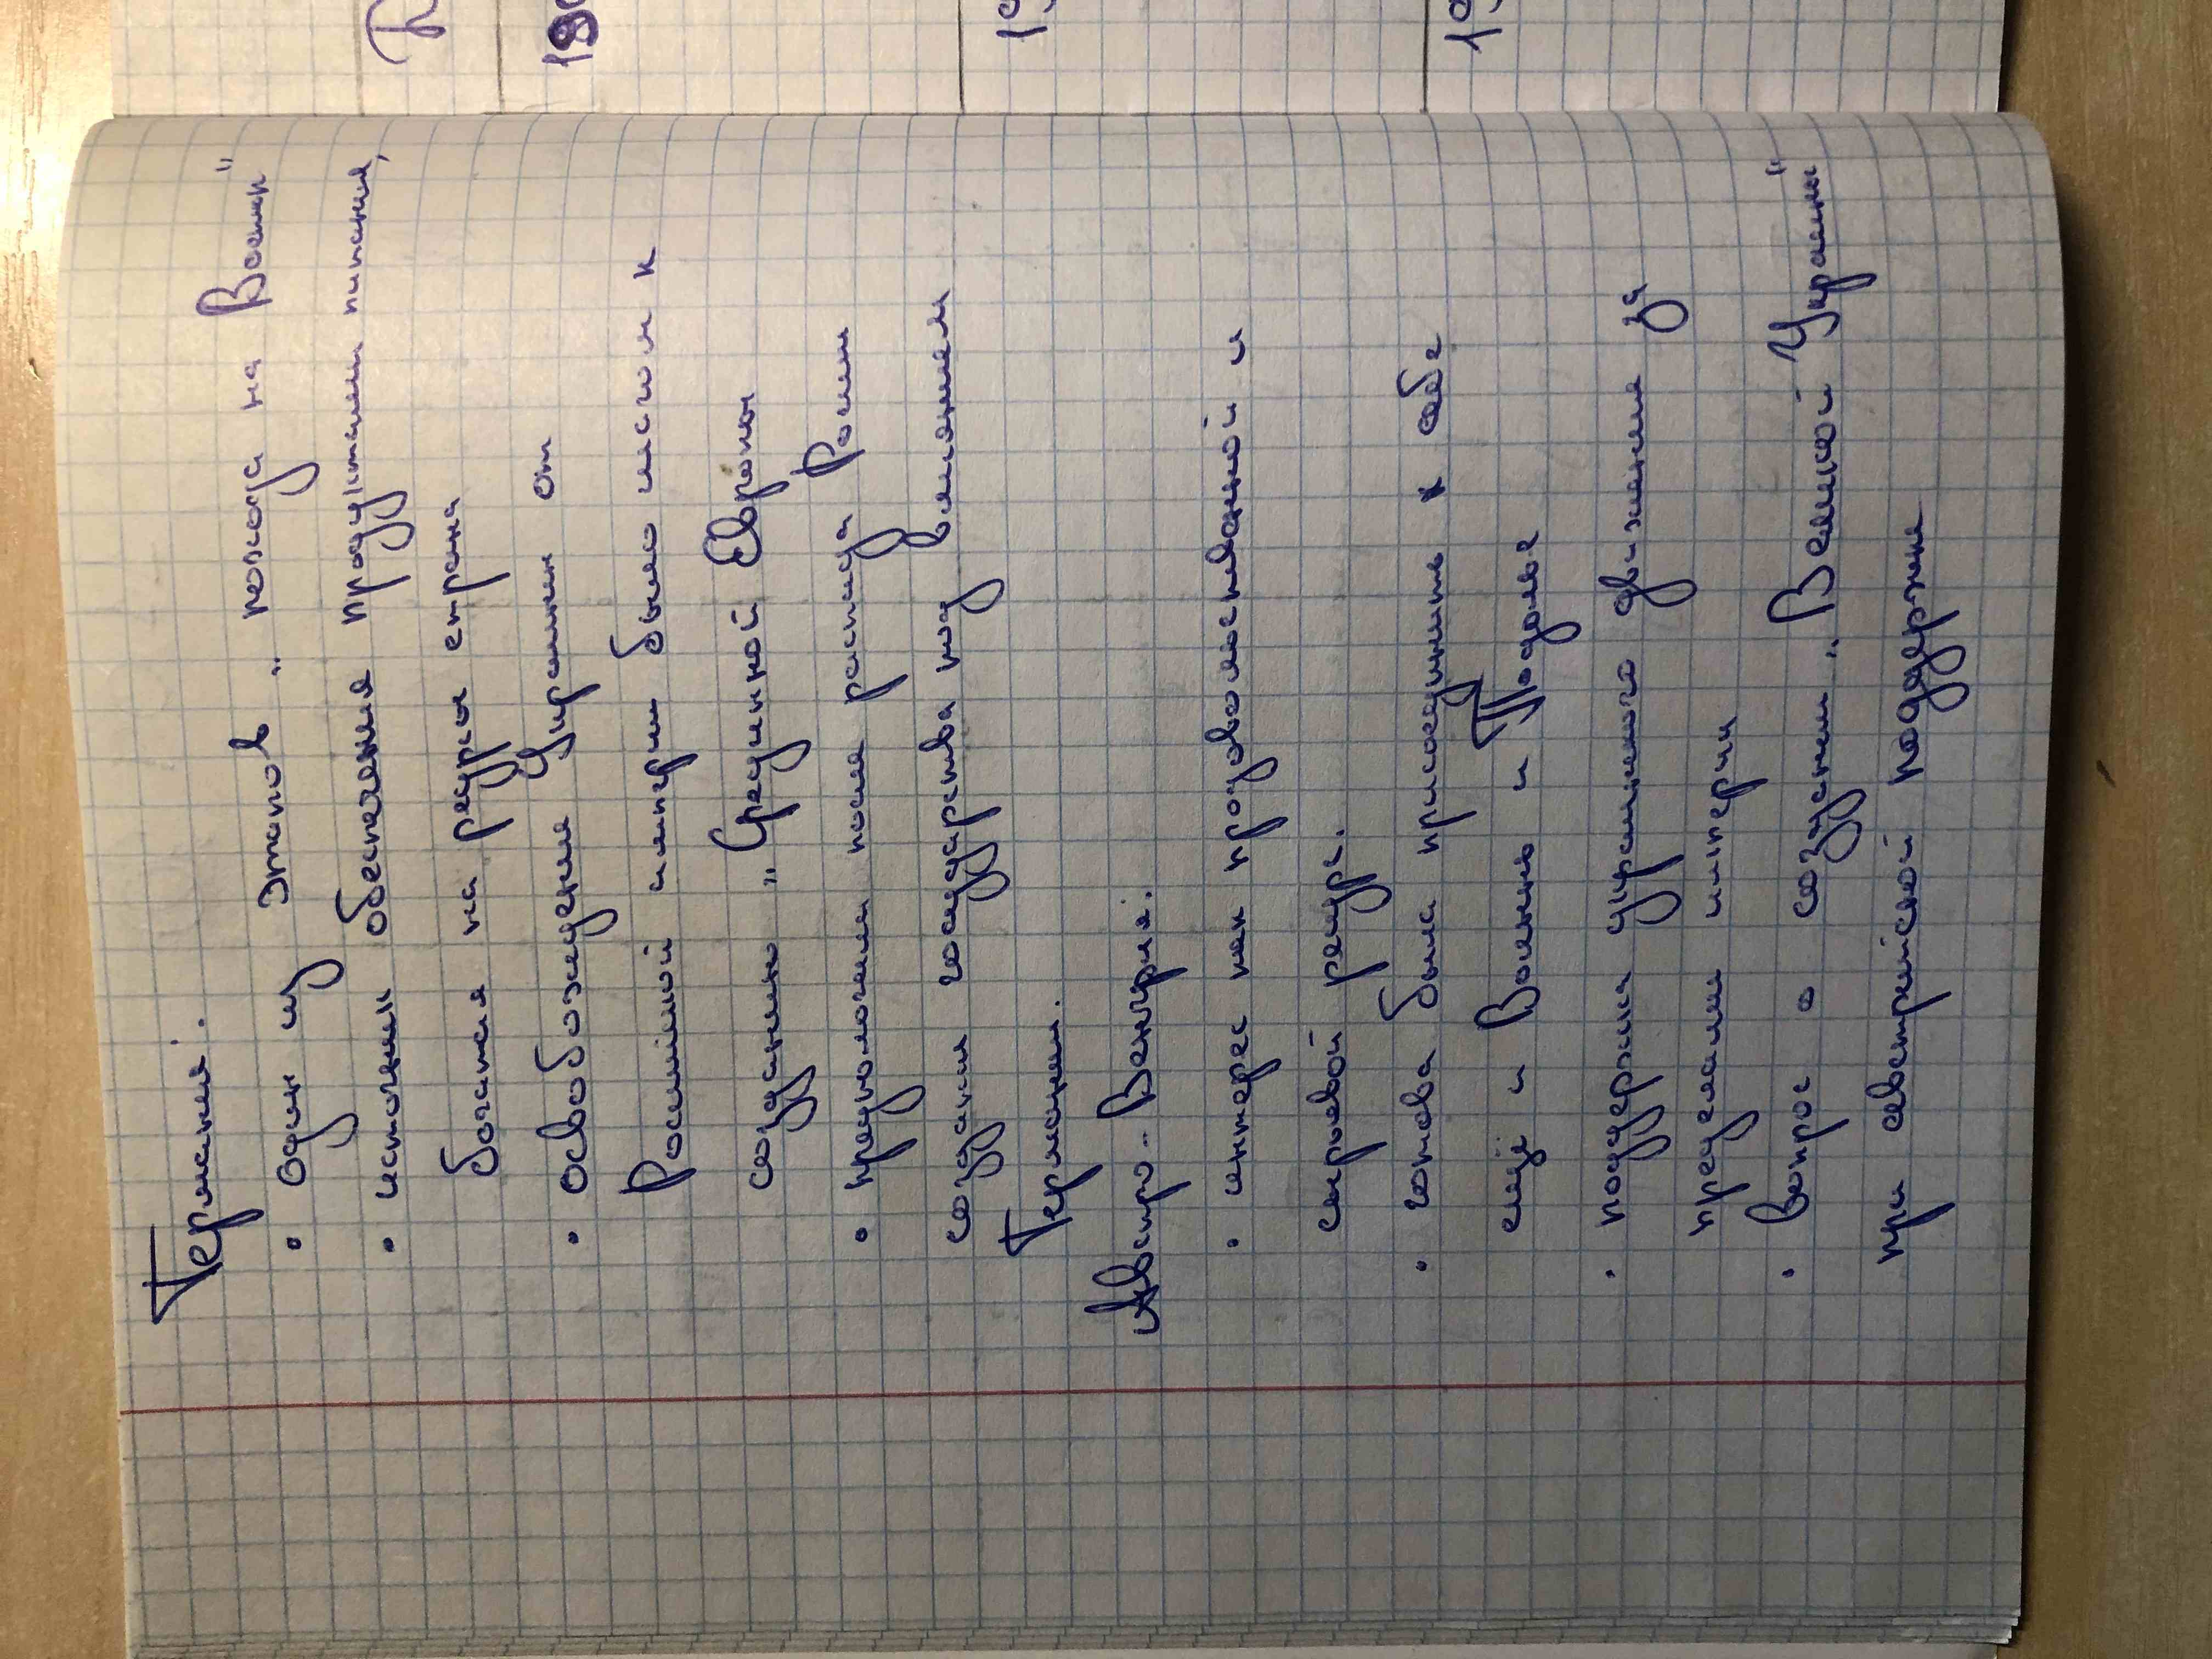 Германия:
• один из этапов „похода на Восток"
• источник обеспечения продуктами питания,
богатая на ресурсы страна
• освобождение Украины от
Российской империи было мостом к
созданию „Срединной Европы
• предположени после распада России
создани государства под влиянием
Германии.
Австро-Венгрия:
• интерес как продовольственной и
сырьевой ресурс.
• готова была присоединить к себе
ещё и Волынь и Подолье
• поддержка украинского движения за
пределами империи
• Вопрос о создании „Великой Украины"
при австрийской поддержке
19
19